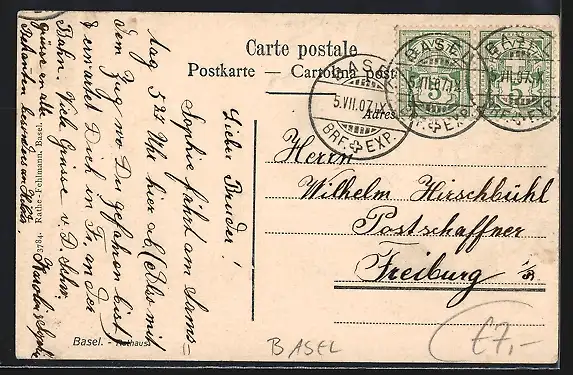 Carte postale
Postkarte – Cartolina post
Adres
BASEL
5.VII.07.IX
BRF. EXP.
BASEL
VII.07.IX
EXP.
BASEL
5.VII.07.X
5
5
Herrn
Wilhelm Hirschbühl
Postschaffner
Freiburg i/B
Lieber Bruder!
Sophie fährt am Sams=
tag 5 Uhr hier ab (also mit
dem Zug wo Du gefahren bist)
& erwartet Dich in Fr. an der
Bahn. Viele Grüsse v. D. Schw.
Karolin
Grüsse an alle
Bekannten besonders an
Rathe-Fehlmann, Basel.
Basel. - Rathaus
BASEL
€7,-